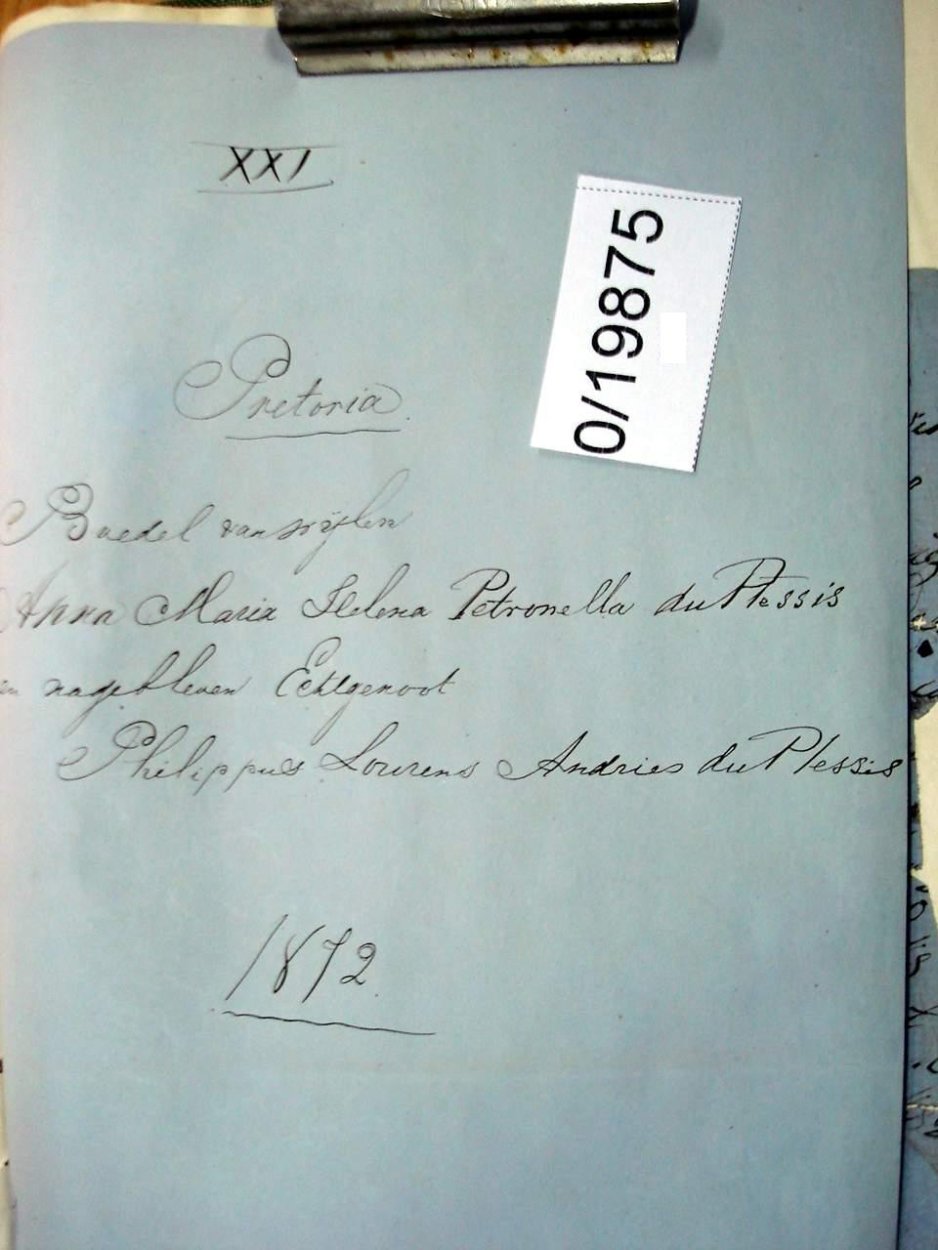 XXI
0/19875
Pretoria.
Boedel van wijlen
Anna Maria Helena Petronella du Plessis
en nagebleven Echtgenoot
Philippus Lourens Andries du Plessis
1872.